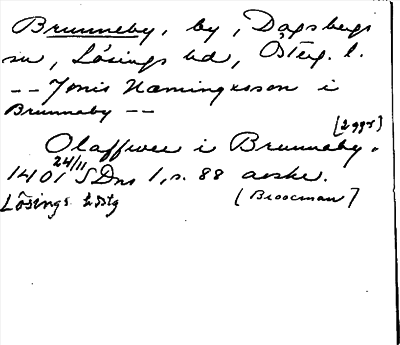 Brunneby, by, Dagsbergs
sn, Lösings hd, Österg. l.
-- Jonis Hamingxsson i
Brunneby --
[2 ggr]
Olaffwee i Brunneby.
1401 24/11 SDns 1, s. 88 avskr.
Lösings hdstg [Broocman]